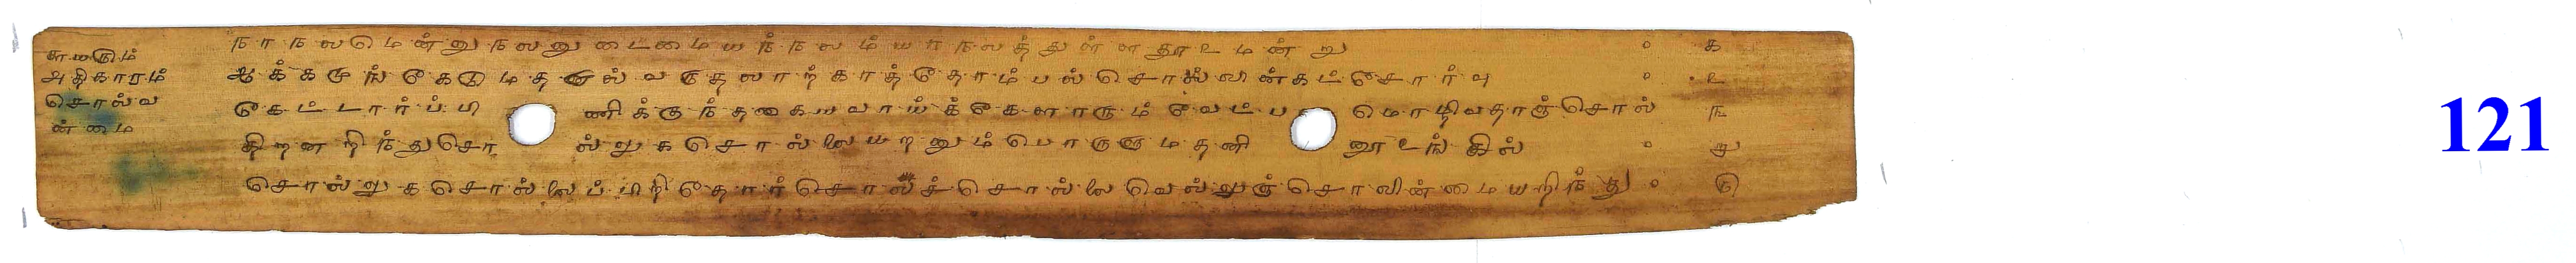 ௬௰௫ம்
அதிகாரம்
சொல்வ
ன்மை
நாநலமென்னுநலனுடைமையந்நலம்யாநலத்துள்ளதூஉமன்று ० ௧
ஆக்கமுங்கேடுமதனால்வருதலாற்காத்தோம்பல்சொல்லின்கட்சோர்வு ० ௨
கேட்டார்ப்பிணிக்குந்தகையவாய்க்கேளாரும்வேட்பமொழிவதாஞ்சொல் ௩
திறனறிந்துசொல்லுகசொல்லையறனும்பொருளுமதனினூஉங்கில் ० ௪
சொல்லுகசொல்லைப்பிறிதோர்சொல்ச்சொல்லைவெல்லுஞ்சொலின்மையறிந்து ० ௫
121